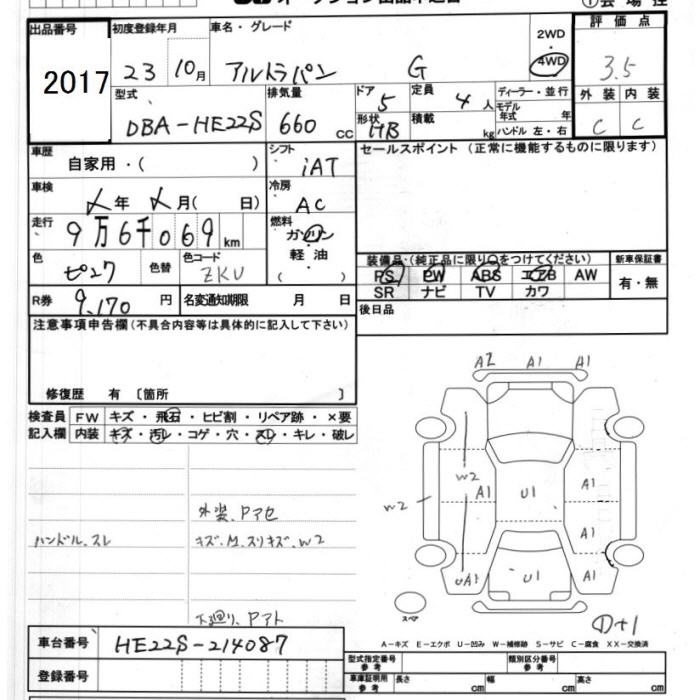 出品番号 初度登録年月 車名・グレード 2WD 評価点
2017 23 10月 アルトラパン G 4WD 3.5
型式 排気量 ドア 定員 ディーラー・並行 外装 内装
DBA-HE22S 660 CC 5 4人 モデル年式 年 C C
形状 HB 積載 kg ハンドル 左・右
車歴 自家用・( ) シフト iAT セールスポイント(正常に機能するものに限ります)
車検 〆年 〆月( 日) 冷房 AC
走行 9万6千069km 燃料 ガソリン・軽油・
色 ピンク 色替 色コード ZKU
装備品・(純正品に限り○をつけてください) 新車保証書
PS PW ABS エアB AW 有・無
SR ナビ TV カワ
R券 9,170円 名変通知期限 月 日 後日品
注意事項申告欄(不具合内容等は具体的に記入して下さい)
修復歴 有 〔箇所 〕
検査員 FW キズ・飛石・ヒビ割・リペア跡・×要
記入欄 内装 キズ・汚レ・コゲ・穴・スレ・キレ・破レ
A2 A1 A1
W2 W2 A1 U1 A1
A1
UA1 U1 A1
外装、Pアセ
ハンドル、スレ キズ、M、スリキズ、W2
下廻り、Pアト
スペア
A-キズ E-エクボ U-凹み W-補修跡 S-サビ C-腐食 XX-交換済
車台番号 HE22S-214087
登録番号
型式指定番号 参考 類別区分番号 参考
車庫証明用 参考 長さ cm 幅 cm 高さ cm